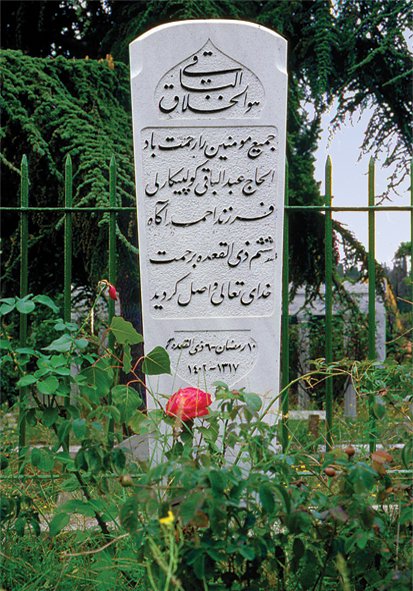 هو الخلاق الباقی
جمیع مومنین را رحمت باد
الحاج عبدالباقی گولپیکارلی
فرزند احمد آگاه
ششم ذی القعده برحمت
خدای تعالی واصل گردید
۱۰ رمضان - ۶ ذی القعده
۱۳۱۷ - ۱۴۰۲